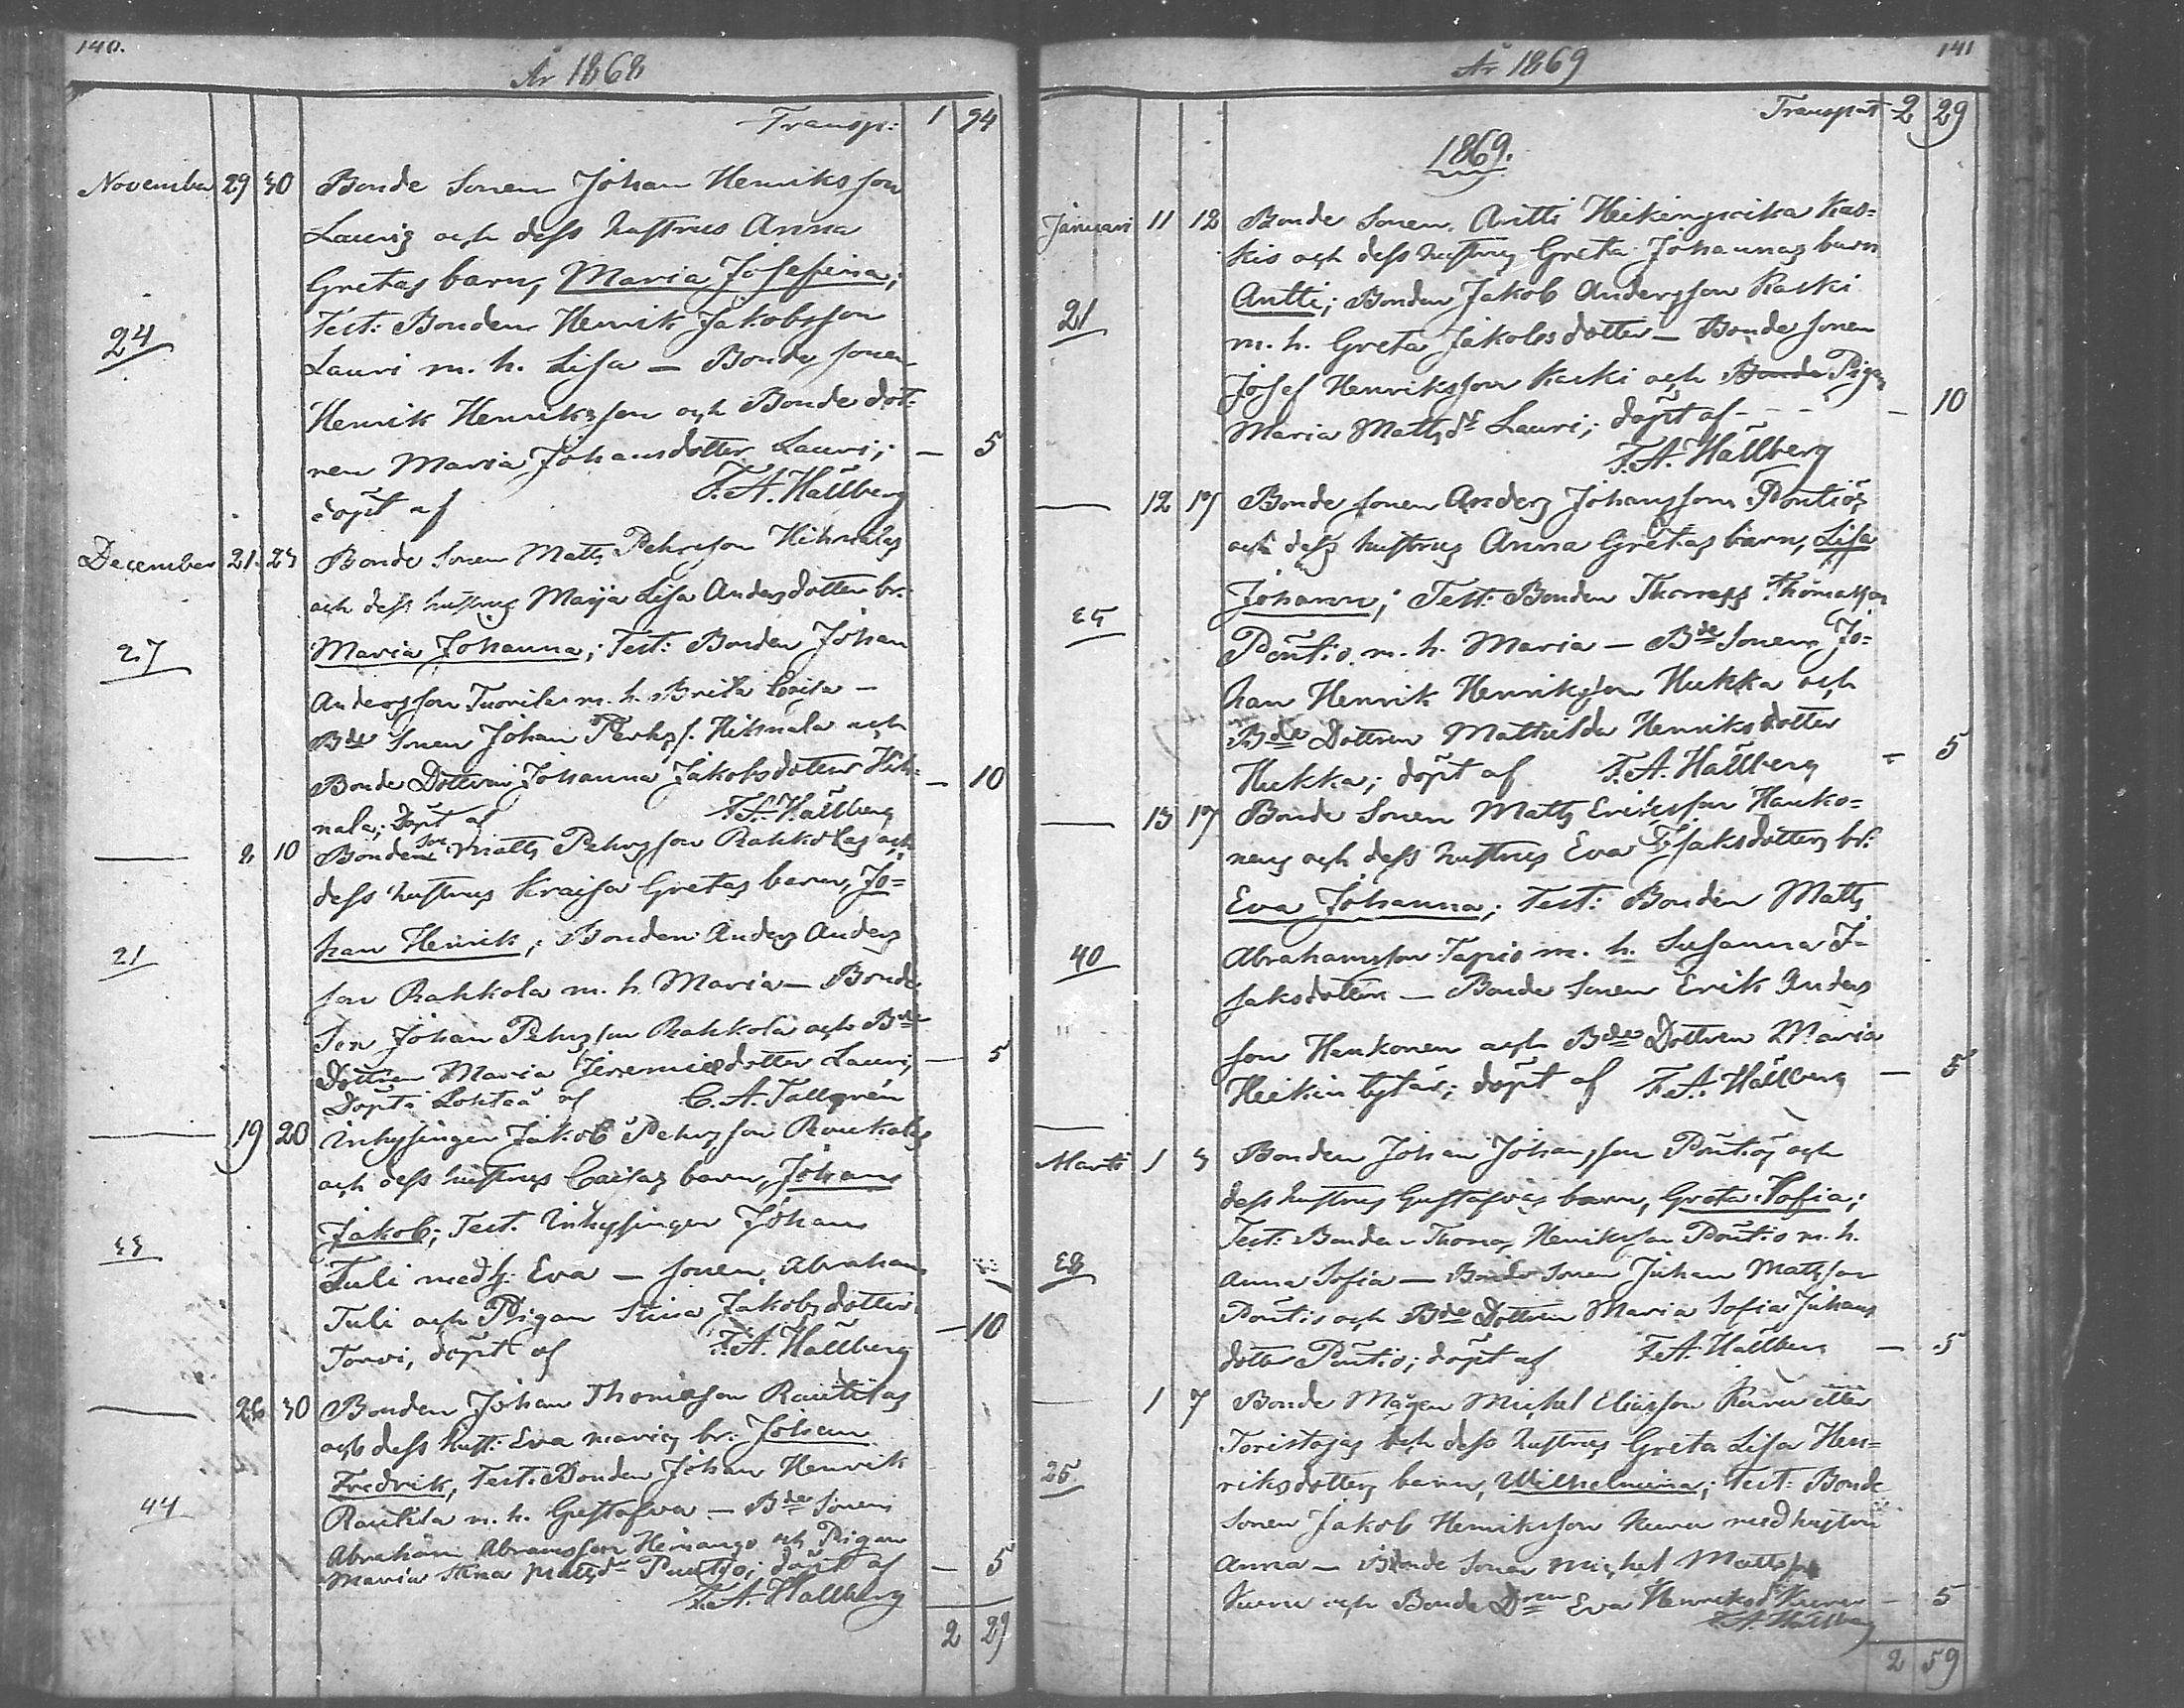 140.
År 1868
Transp: 1 94
November 29 30 Bonde Sonen Johan Henriksson
Lauris och dess hustrus Anna
Gretas barn, Maria Josefina;
24 Test: Bonden Henrik Jakobsson
Lauri m. h. Lisa — Bonde sonen
Henrik Henriksson och Bonde dot-
ren Maria Johansdotter Lauri; — 5
döpt af F. A. Hällberg
December 21 23 Bonde Sonen Matts Pehrsson Hihnalas
och dess hustrus Maija Lisa Andersdotter br.
27 Maria Johanna; Test: Bonden Johan
Andersson Tuorila m. h. Brita Caisa —
Bde Sonen Johan Pehrss. Hihnala och
Bonde Dottren Johanna Jakobsdotter Hih- — 10
nala; Döpt af F. A. Hällberg
— 8 10 Bonden son Matts Pehrsson Rahkolas och
dess hustrus Kraisa Gretas barn, Jo-
21 han Henrik; Bonden Anders Anders
son Rahkola m. h. Maria — Bonde
Son Johan Pehrsson Rahkola och Bde
Dottren Maria Jeremiedotter Lauri; — 5
Döpt i Lohteå af C. A. Tallgrén
— 19 20 Inhysingen Jakob Pehrsson Raukalas
och dess hustrus Caisas barn, Johan
33 Jakob; Test. Inhysingen Johan
Tuli med h. Eva — sonen Abraham
Tuli och Pigan Stina Jakobsdotter — 10
Torvi, döpt af F. A. Hällberg
— 26 30 Bonden Johan Thomasson Rautilas
och dess hust: Eva marias br: Johan
Fredrik, Test: Bonden Johan Henrik
44 Rautila m. h. Gustafva — Bde Sonen
Abraham Abramsson Heinango och Pigan
Maria Stina Mattsdr Puutio; döpt af — 5
F. A. Hällberg
2 29
141
År 1869
Transport 2 29
1869.
Januari 11 12 Bonde Sonen Antti Heikinpoika Kas-
kis och dess hustrus Greta Johannas barn
21 Antti; Bonden Jakob Andersson Kaski
m. h. Greta Jakobsdotter — Bonde sonen
Josef Henriksson Kaski och Bonde Pigan — 10
Maria Mattsdr Lauri; döpt af - - -
F. A. Hällberg
— 12 17 Bonde sonen Anders Johansson Pöntiös
och dess hustrus Anna Gretas barn, Lisa
35 Johanna; Test: Bonden Thomas Thomasson
Pöntiö m. h. Maria — Bde Sonen Jo-
han Henrik Henriksson Hukka och
Bde Dottren Mathilda Henriksdotter
Hukka; döpt af F. A. Hällberg — 5
— 13 17 Bonde Sonen Matts Eriksson Hanko-
nens och dess hustrus Eva Isaksdotters br:
Eva Johanna; Test: Bonden Matts
40 Abrahamsson Tapio m. h. Susanna I-
saksdotter — Bonde Sonen Erik Anders
son Hankonen och Bde Dottren Maria
Heikin tytär; döpt af F. A. Hällberg — 5
Marti 1 3 Bonden Johan Johansson Pöntiös och
dess hustrus Gustafvas barn, Greta Sofia;
Test: Bonden Thomas Henriksson Pöntiö m. h.
38 Anna Sofia — Bonde Sonen Johan Mattsson
Pöntiö och Bde Dottren Maria Sofia Johans
dotter Pöntiö; döpt af F. A. Hällberg — 5
— 1 7 Bonde Mågen Michel Eliasson Kuru eller
Toristojas och dess hustrus Greta Lisa Hen-
25 riksdotters barn, Wilhelmina; Test: Bonde
sonen Jakob Henriksson Kuru med hustru
Anna — Bonde Sonen Michel Mattsson
Kuru och Bonde Dren Eva Henriksd Kuru — 5
F. A. Hällberg
2 59